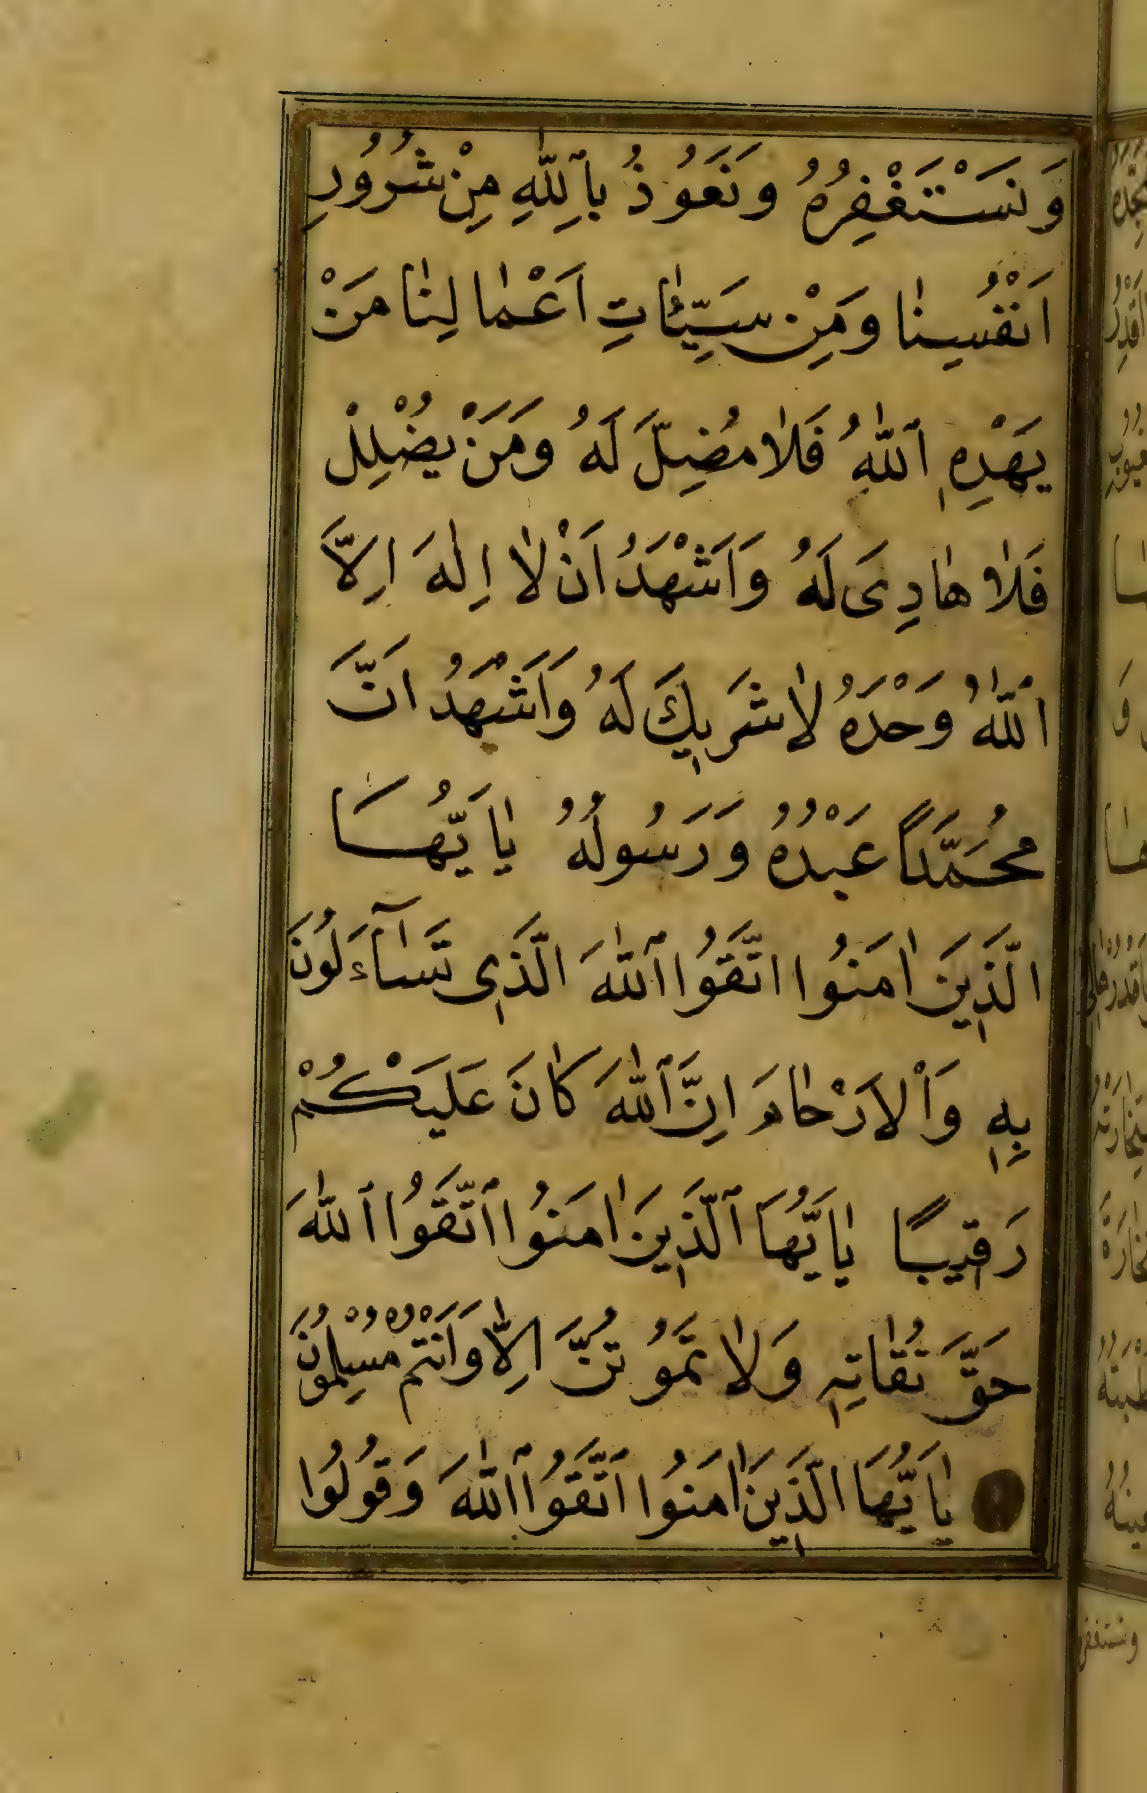 وَنَسْتَغْفِرُهُ وَنَعُوذُ بِاللّٰهِ مِنْ شُرُورِ
اَنْفُسِنٰا وَمِنْ سَيِّئٰاتِ اَعْمٰالِنٰا مَنْ
يَهْدِهِ اللّٰهُ فَلاٰ مُضِلَّ لَهُ وَمَنْ يُضْلِلْ
فَلاٰ هٰادِىَ لَهُ وَاَشْهَدُ اَنْ لاٰ اِلٰهَ اِلاَّ
اللّٰهُ وَحْدَهُ لاٰ شَرِيكَ لَهُ وَاَشْهَدُ انَّ
مُحَمَّدًا عَبْدُهُ وَرَسُولُهُ يٰا يُّهَا
الَّذِينَ اٰمَنُوا اتَّقُوا اللّٰهَ الَّذِى تَسٰآءَلُونَ
بِهِ وَاْلاَرْحٰامَ اِنَّ اللّٰهَ كٰانَ عَلَيْكُمْ
رَقِيبًا يٰا يُّهَا الَّذِينَ اٰمَنُوا اتَّقُوا اللّٰهَ
حَقَّ تُقٰاتِهِ وَلاٰ تَمُوتُنَّ اِلاّٰ وَاَنْتُمْ مُسْلِمُونَ
يٰا يُّهَا الَّذِينَ اٰمَنُوا اتَّقُوا اللّٰهَ وَقُولُوا
ونستغفره